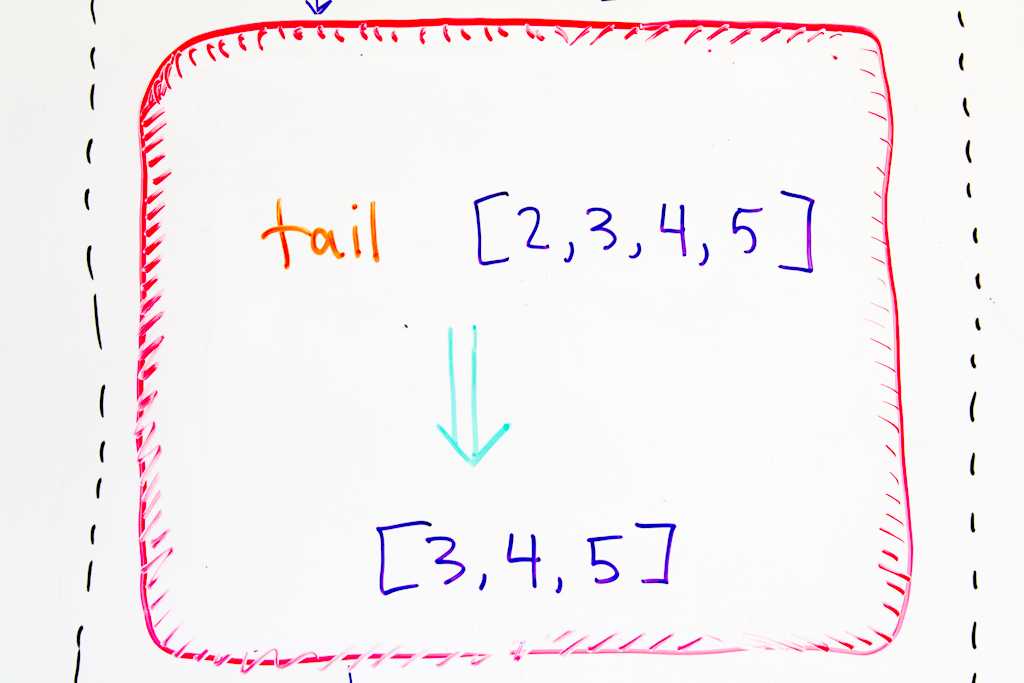 tail [2,3,4,5]
[3,4,5]